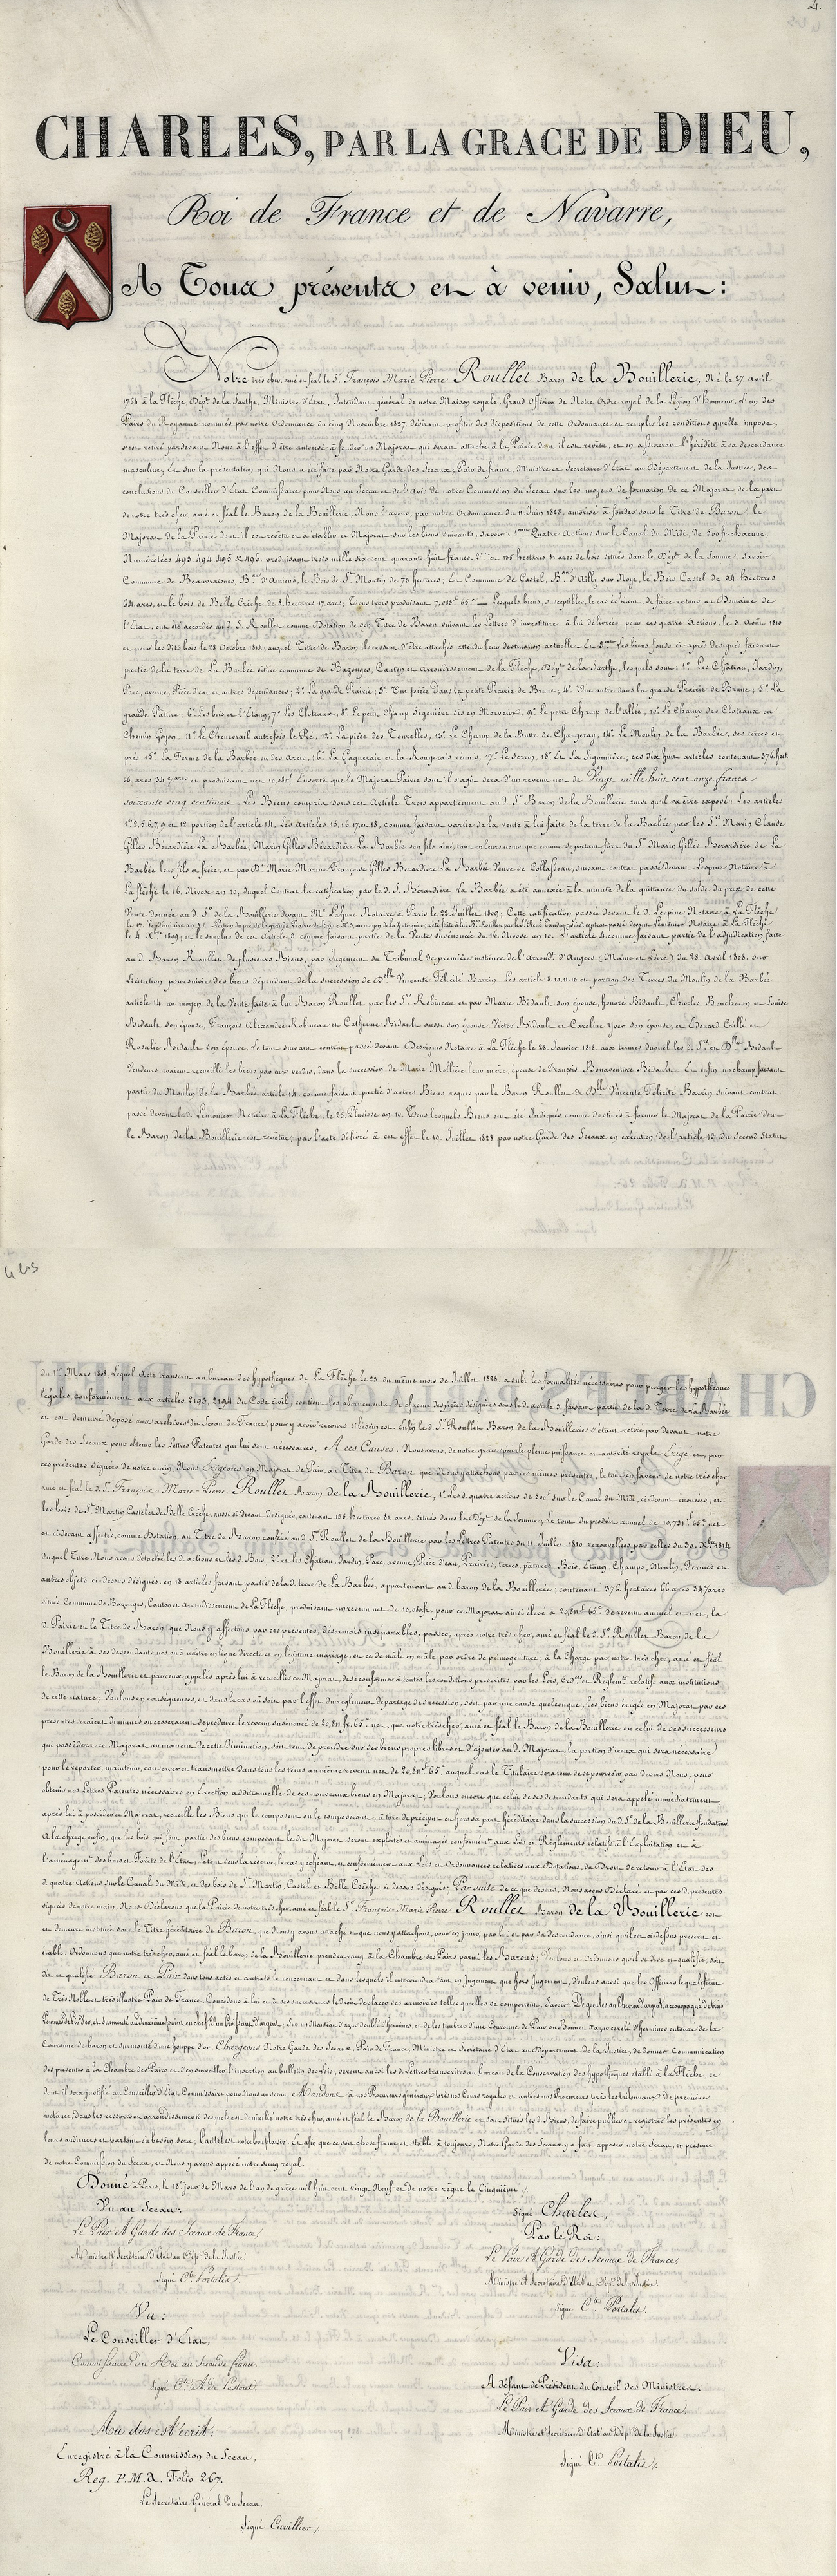 2.
CHARLES, PAR LA GRACE DE DIEU,
Roi de France et de Navarre,
A Tous présents et à venir, Salut:
Notre très cher, amé et féal le Sr. François Marie Pierre Roullet Baron de la Bouillerie, Né le 27. avril
1764 à la Flèche, Dépt. de la Sarthe, Ministre d'Etat, Intendant général de notre Maison royale, Grand Officier de Notre Ordre royal de la Légion d'honneur, L'un des
Pairs du Royaume nommés par notre Ordonnance du cinq Novembre 1827, désirant profiter des dispositions de cette Ordonnance et remplir les conditions qu'elle impose,
s'est retiré pardevant Nous à l'effet d'être autorisé à fonder un Majorat qui serait attaché à la Pairie dont il est revêtu, et en assurerait l'hérédité à sa descendance
masculine, Et sur la présentation qui Nous a été faite par Notre Garde des Sceaux, Pair de france, Ministre et Secrétaire d'Etat au Département de la Justice, des
conclusions du Conseiller d'Etat Commissaire pour Nous au Sceau et de l'Avis de notre Commission du Sceau sur les moyens de formation de ce Majorat de la part
de notre très cher, amé et féal le Baron de la Bouillerie, Nous l'avons, par notre Ordonnance du 11 Juin 1828, autorisé à fonder sous le Titre de Baron, le
Majorat de la Pairie dont il est revêtu et à établir ce Majorat sur les biens suivants, savoir, 1ment Quatre Actions sur le Canal du Midi, de 500 fr. chacune,
Numérotées 493, 494, 495 & 496, produisant trois mille six cent quarante huit francs, 2ment et 135 hectares 81 ares de bois situés dans le Dépt. de la Somme, savoir
Commune de Beauvraines, Bon d'Amiens, le Bois de St. Martin de 73 hectares; Et Commune de Castel, Bon d'Ailly sur Noye, le Bois Castel de 54. hectares
64. ares, et le bois de Belle Crèche de 8 hectares 17. ares; Tous trois produisant 7,083f 65c — Lesquels biens, susceptibles, le cas échéant, de faire retour au Domaine de
l'Etat, ont été accordés au d. S. Roullet comme Dotation de son Titre de Baron suivant les Lettres d'investiture à lui délivrées, pour ces quatre Actions, le 3. Août 1810
et pour les dits bois le 28 Octobre 1814, auquel Titre de Baron ils cessent d'être attachés attendu leur destination actuelle — Et 3ment Les biens fonds ci-après désignés faisant
partie de la terre de La Barbée située commune de Bazouges, Canton et Arrondissement de la Flèche, Dépt. de la Sarthe, lesquels sont: 1°. Les Château, Jardin,
Parc, avenue, Pièce d'eau et autres dépendances; 2°. La grande Prairie; 3°. Une pièce dans la petite Prairie de Brune, 4°. Une autre dans la grande Prairie de Brune; 5°. La
grande Pâture; 6°. Les bois et l'Etang; 7°. Les Cloteaux, 8°. Le petit Champ Sigonière dit en Morveux, 9°. Le petit Champ de l'allée, 10°. Le Champ des Cloteaux ou
Chemin Goyon, 11°. Le Chenevrail autrefois le Pré, 12°. La pièce des Tourelles, 13°. Le Champ de la Butte de Changeray, 14°. Le Moulin de la Barbée, ses terres et
prés, 15°. La Ferme de la Barbée ou des Arcis, 16°. La Gagnerie et la Rougerais réunis, 17°. Le Serrin, 18°. Et La Sigonnière; ces dix huit articles contenant 376 hect.
66. ares 34 c/ares et produisant net 10,080f. Ensorte que le Majorat-Pairie dont il s'agit sera d'un revenu net de Vingt mille huit cent onze francs
soixante cinq centimes. Les Biens compris sous cet Article Trois appartiennent au d. Sr. Baron de la Bouillerie ainsi qu'il va être exposé. Les articles
1er 2, 5, 6, 7, 9 et 12 portion de l'article 14. Les Articles 15, 16, 17, et 18, comme faisant partie de la vente à lui faite de la terre de la Barbée par les Srs Marin Claude
Gilles Bérardière La Barbée, Marin Gilles Bérardière La Barbée son fils aîné, tant en leurs noms que comme se portant fort du Sr. Marin Gilles Bérardière de La
Barbée leur fils et frère, et par De. Marie Marine Françoise Gilles Berardière La Barbée Veuve de Collasseau, suivant contrat passé devant Lespine Notaire à
La flèche le 16. Nivose an 10, duquel Contrat la ratification par le d. S. Bérardière La Barbée a été annexée à la minute de la quittance du solde du prix de cette
Vente donnée au d. Sr. de la Bouillerie devant Me. Lahure Notaire à Paris le 22 Juillet 1809; Cette ratification passée devant le d. Lespine Notaire à La Flèche
le 4. Xbre 1809, et le surplus de cet article 3. comme faisant partie de la Vente susénoncée du 16. Nivose an 10. L'article 4 comme faisant partie de l'adjudication faite
au d. Baron Roullet de plusieurs Biens, par Jugement du Tribunal de première instance de l'arrondt. d'Angers (Maine et Loire) du 28. Avril 1808. sur
Licitation poursuivie des biens dépendant de la succession de Delle Vincente Félicité Barrin. Les article 8. 10. 11. 13 et portion des Terres du Moulin de la Barbée
article 14. au moyen de la Vente faite à lui Baron Roullet par les Sr. Robineau et par Marie Bidault son épouse, honoré Bidault, Charles Boucheron et Louise
Bidault son épouse, François Alexandre Robineau et Catherine Bidault aussi son épouse, Victor Bidault et Caroline Yver son épouse, et Edouard Caillé et
Rosalie Bidault son épouse, Le tout suivant contrat passé devant Desvignes Notaire à La Flèche le 28. Janvier 1818, aux termes duquel les d. Srs et Delles Bidault
Vendeurs avaient recueilli les biens par eux vendus, dans la succession de Marie Mollière leur mère, épouse de François Bonaventure Bidault. Et enfin un champ faisant
partie du Moulin de la Barbée article 14. comme faisant partie d'autres Biens acquis par le Baron Roullet de Delle Vincente Félicité Barrin suivant contrat
passé devant le d. Lemonnier Notaire à La Flèche, le 25. Pluviose an 10. Tous lesquels Biens ont été indiqués comme destinés à former le Majorat de la Pairie dont
le Baron de la Bouillerie est revêtu, par l'acte délivré à cet effet le 10. Juillet 1828 par notre Garde des Sceaux en exécution de l'article 13. du Second Statut
du 1er. Mars 1808, Lequel Acte transcrit au bureau des hypothèques de La Flèche le 23. du même mois de Juillet 1828. a subi les formalités nécessaires pour purger les hypothèques
légales, conformément aux articles 2193, 2194 du Code civil, contient les abornements de chacune des pièces désignées sous le d. article 3. faisant partie de la d. Terre de La Barbée
et est demeuré déposé aux archives du Sceau de France, pour y avoir recours si besoin est. Enfin le d. Sr. Roullet Baron de la Bouillerie s'étant retiré par devant notre
Garde des Sceaux pour obtenir les Lettres Patentes qui lui sont nécessaires, A ces Causes, Nous avons, de notre grâce spéciale pleine puissance et autorité royale Erigé et, par
ces présentes signées de notre main, Nous Erigeons en Majorat de Pair, au Titre de Baron que Nous y attachons par ces mêmes présentes, le tout en faveur de notre très cher
amé et féal le d. Sr. François-Marie-Pierre Roullet Baron de la Bouillerie, 1°. Les d. quatre actions de 500f. sur le Canal du Midi, ci-devant énoncées; et
les bois de St. Martin, Castel et de Belle Crèche, aussi ci devant désignés, contenant 135. hectares 81 ares, situés dans le Dépt. de la Somme, Le tout du produit annuel de 10,731f 65c net
et ci-devant affectés, comme Dotation, au Titre de Baron conféré au d. Sr. Roullet de la Bouillerie par les Lettres Patentes du 11. Juillet 1810. renouvellées par celles du 30. Xbre 1814
duquel Titre Nous avons détaché les d. actions et les d. Bois; 2°. et les Château, Jardin, Parc, avenue, Pièce d'eau, Prairies, terres, pâtures, Bois, Etang, Champs, Moulin, Fermes et
autres objets ci-dessus désignés, en 18. articles faisant partie de la d. terre de La Barbée, appartenant au baron de la Bouillerie; contenant 376 hectares 66 ares 34 c/ares
situés Commune de Bazouges, Canton et Arrondissement de La Flèche, produisant un revenu net de 10,080fr. pour ce Majorat ainsi élevé à 20,811f 65c de revenu annuel et net, la
d. Pairie et le Titre de Baron que Nous y affectons par ces présentes, désormais inséparables, passer, après notre très cher, amé et féal le d. Sr. Roullet Baron de la
Bouillerie à ses descendants nés ou à naître en ligne directe et en légitime mariage, et ce de mâle en mâle, par ordre de primogéniture; à la Charge par notre très cher, amé et féal
le Baron de la Bouillerie et par ceux appelés après lui à recueillir ce Majorat, de se conformer à toutes les conditions prescrites par les Lois, Ordces et Réglemts. relatifs aux institutions
de cette nature; Voulons en conséquence, et dans le cas où soit par l'effet du réglement de partage de succession, soit par une cause quelconque, les biens érigés en Majorat par ces
présentes seraient diminués ou cesseraient de produire le revenu susénoncé de 20,811 fr. 65c net, que notre très cher, amé et féal le Baron de la Bouillerie ou celui de ses successeurs
qui possédera ce Majorat au moment de cette diminution, soit tenu de prendre sur ses biens propres libres et d'ajouter au d. Majorat, la portion d'iceux qui sera nécessaire
pour le reporter, maintenir, conserver et transmettre dans tous les tems au même revenu net de 20,811f 65c auquel cas le Titulaire sera tenu de se pourvoir par devers Nous, pour
obtenir nos Lettres Patentes nécessaires en Erection additionnelle de ces nouveaux biens en Majorat; Voulons encore que celui de ses descendants qui sera appelé immédiatement
après lui à posséder ce Majorat, recueille les Biens qui le composent ou le composeront, à titre de préciput et hors sa part héréditaire dans la succession du d. Sr. de la Bouillerie fondateur.
A la charge enfin, que les bois qui font partie des biens composant le dit Majorat seront exploités et aménagés conformémt. aux Lois et Réglements relatifs à l'Exploitation et à
l'aménagemt. des bois et Forêts de l'Etat; Le tout sous la réserve, le cas y échéant, et conformément aux Lois et Ordonnances relatives aux Dotations, du Droit de retour à l'Etat des
d. quatre Actions sur le Canal du Midi, et des bois de St. Martin, Castel et Belle Crèche, ci dessus désignés; Par suite de ce que dessus, Nous avons Déclaré et par ces d. présentes
signées de notre main, Nous Déclarons que la Pairie de notre très cher, amé et féal le Sr. François-Marie-Pierre Roullet Baron de la Bouillerie est
et demeure instituée sous le Titre héréditaire de Baron, que Nous y avons attaché et que nous y attachons, pour en jouir, par lui et par sa descendance, ainsi qu'il est ci-dessus prescrit et
établi. Ordonnons que notre très cher, amé et féal le baron de la Bouillerie prendra rang à la Chambre des Pairs parmi les Barons; Voulons et Ordonnons qu'il se dise et qualifie, soit
dit et qualifié Baron et Pair dans tous actes et contrats le concernant et dans lesquels il interviendra tant en Jugement que hors Jugement, Voulons aussi que les Officiers le qualifient
de Très Noble et très illustre Pair de France. Concédons à lui et à ses successeurs le droit de placer ses armoiries telles qu'elles se comportent, savoir De gueules au Chevron d'argent, accompagné de trois
Pommes de Pin d'or, et surmonté au deuxième point en chef, d'un Croissant d'argent, Sur un Manteau d'azur doublé d'hermines, et de les timbrer d'une Couronne de Pair ou Bonnet d'azur cerclé d'hermines entouré de la
Couronne de baron et surmonté d'une houppe d'or. Chargeons Notre Garde des Sceaux, Pair de France, Ministre et Secrétaire d'Etat au Département de la Justice, de donner Communication
des présentes à la Chambre des Pairs et d'en surveiller l'insertion au bulletin des Lois; seront aussi les d. Lettres transcrites au bureau de la Conservation des hypothèques établi à la Flèche, ce
dont il sera justifié au Conseiller d'Etat Commissaire pour Nous au sceau, Mandons à nos Procureurs généraux près nos Cours royales et autres nos Procureurs près les tribunaux de première
instance, dans les ressorts et arrondissements desquels est domicilié notre très cher, amé et féal le Baron de la Bouillerie et sont situés les d. Biens, de faire publier et registrer les présentes en
leurs audiences et partout où besoin sera; Car tel est notre bon plaisir. Et afin que ce soit chose ferme et stable à toujours, Notre Garde des Sceaux y a fait apposer notre Sceau, en présence
de notre Commission du Sceau, et Nous y avons apposé notre seing royal.
Donné à Paris, le 18e. jour de Mars de l'an de grâce mil huit cent vingt Neuf et de notre règne le Cinquième ./.
Vu au Sceau:
Le Pair et Garde des Sceaux de France,
Ministre et Secrétaire d'Etat au Dépt. de la Justice.
Signé Cte. Portalis.
Vu:
Le Conseiller d'Etat,
Commissaire du Roi au Sceau de france.
Signé Cte. A. de Pastoret.
Au dos est écrit:
Enregistré à la Commission du Sceau,
Reg. P. M. A. Folio 267.
Le Secrétaire Général du Sceau,
Signé Cuvillier ./.
Signé Charles,
Par le Roi:
Le Pair et Garde des Sceaux de France,
Ministre et Secrétaire d'Etat au Dépt. de la Justice
Signé Cte. Portalis.
Visa:
A défaut de Président du Conseil des Ministres.
Le Pair et Garde des Sceaux de France,
Ministre et Secrétaire d'Etat au Dépt. de la Justice.
Signé Cte. Portalis ./.